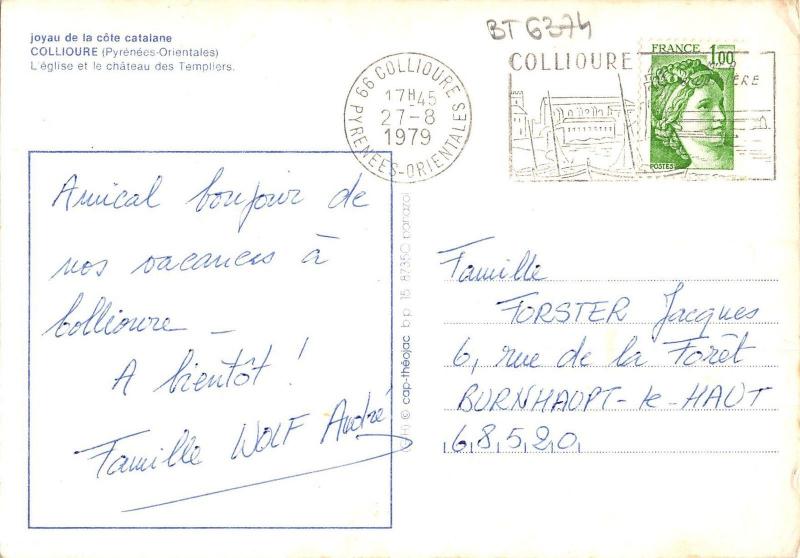 joyau de la côte catalane
COLLIOURE (Pyrénées-Orientales)
L'église et le château des Templiers.
BT 6374
66 COLLIOURE
17H45
27-8
1979
PYRENEES-ORIENTALES
COLLIOURE
FRANCE 1,00
POSTES
Amical bonjour de
nos vacances à
Collioure -
A bientôt !
Famille WOLF André
© cap-théojac b.p. 15 87350 panazol
Famille
FORSTER Jacques
6, rue de la Forêt
BURNHAUPT-le-HAUT
68520